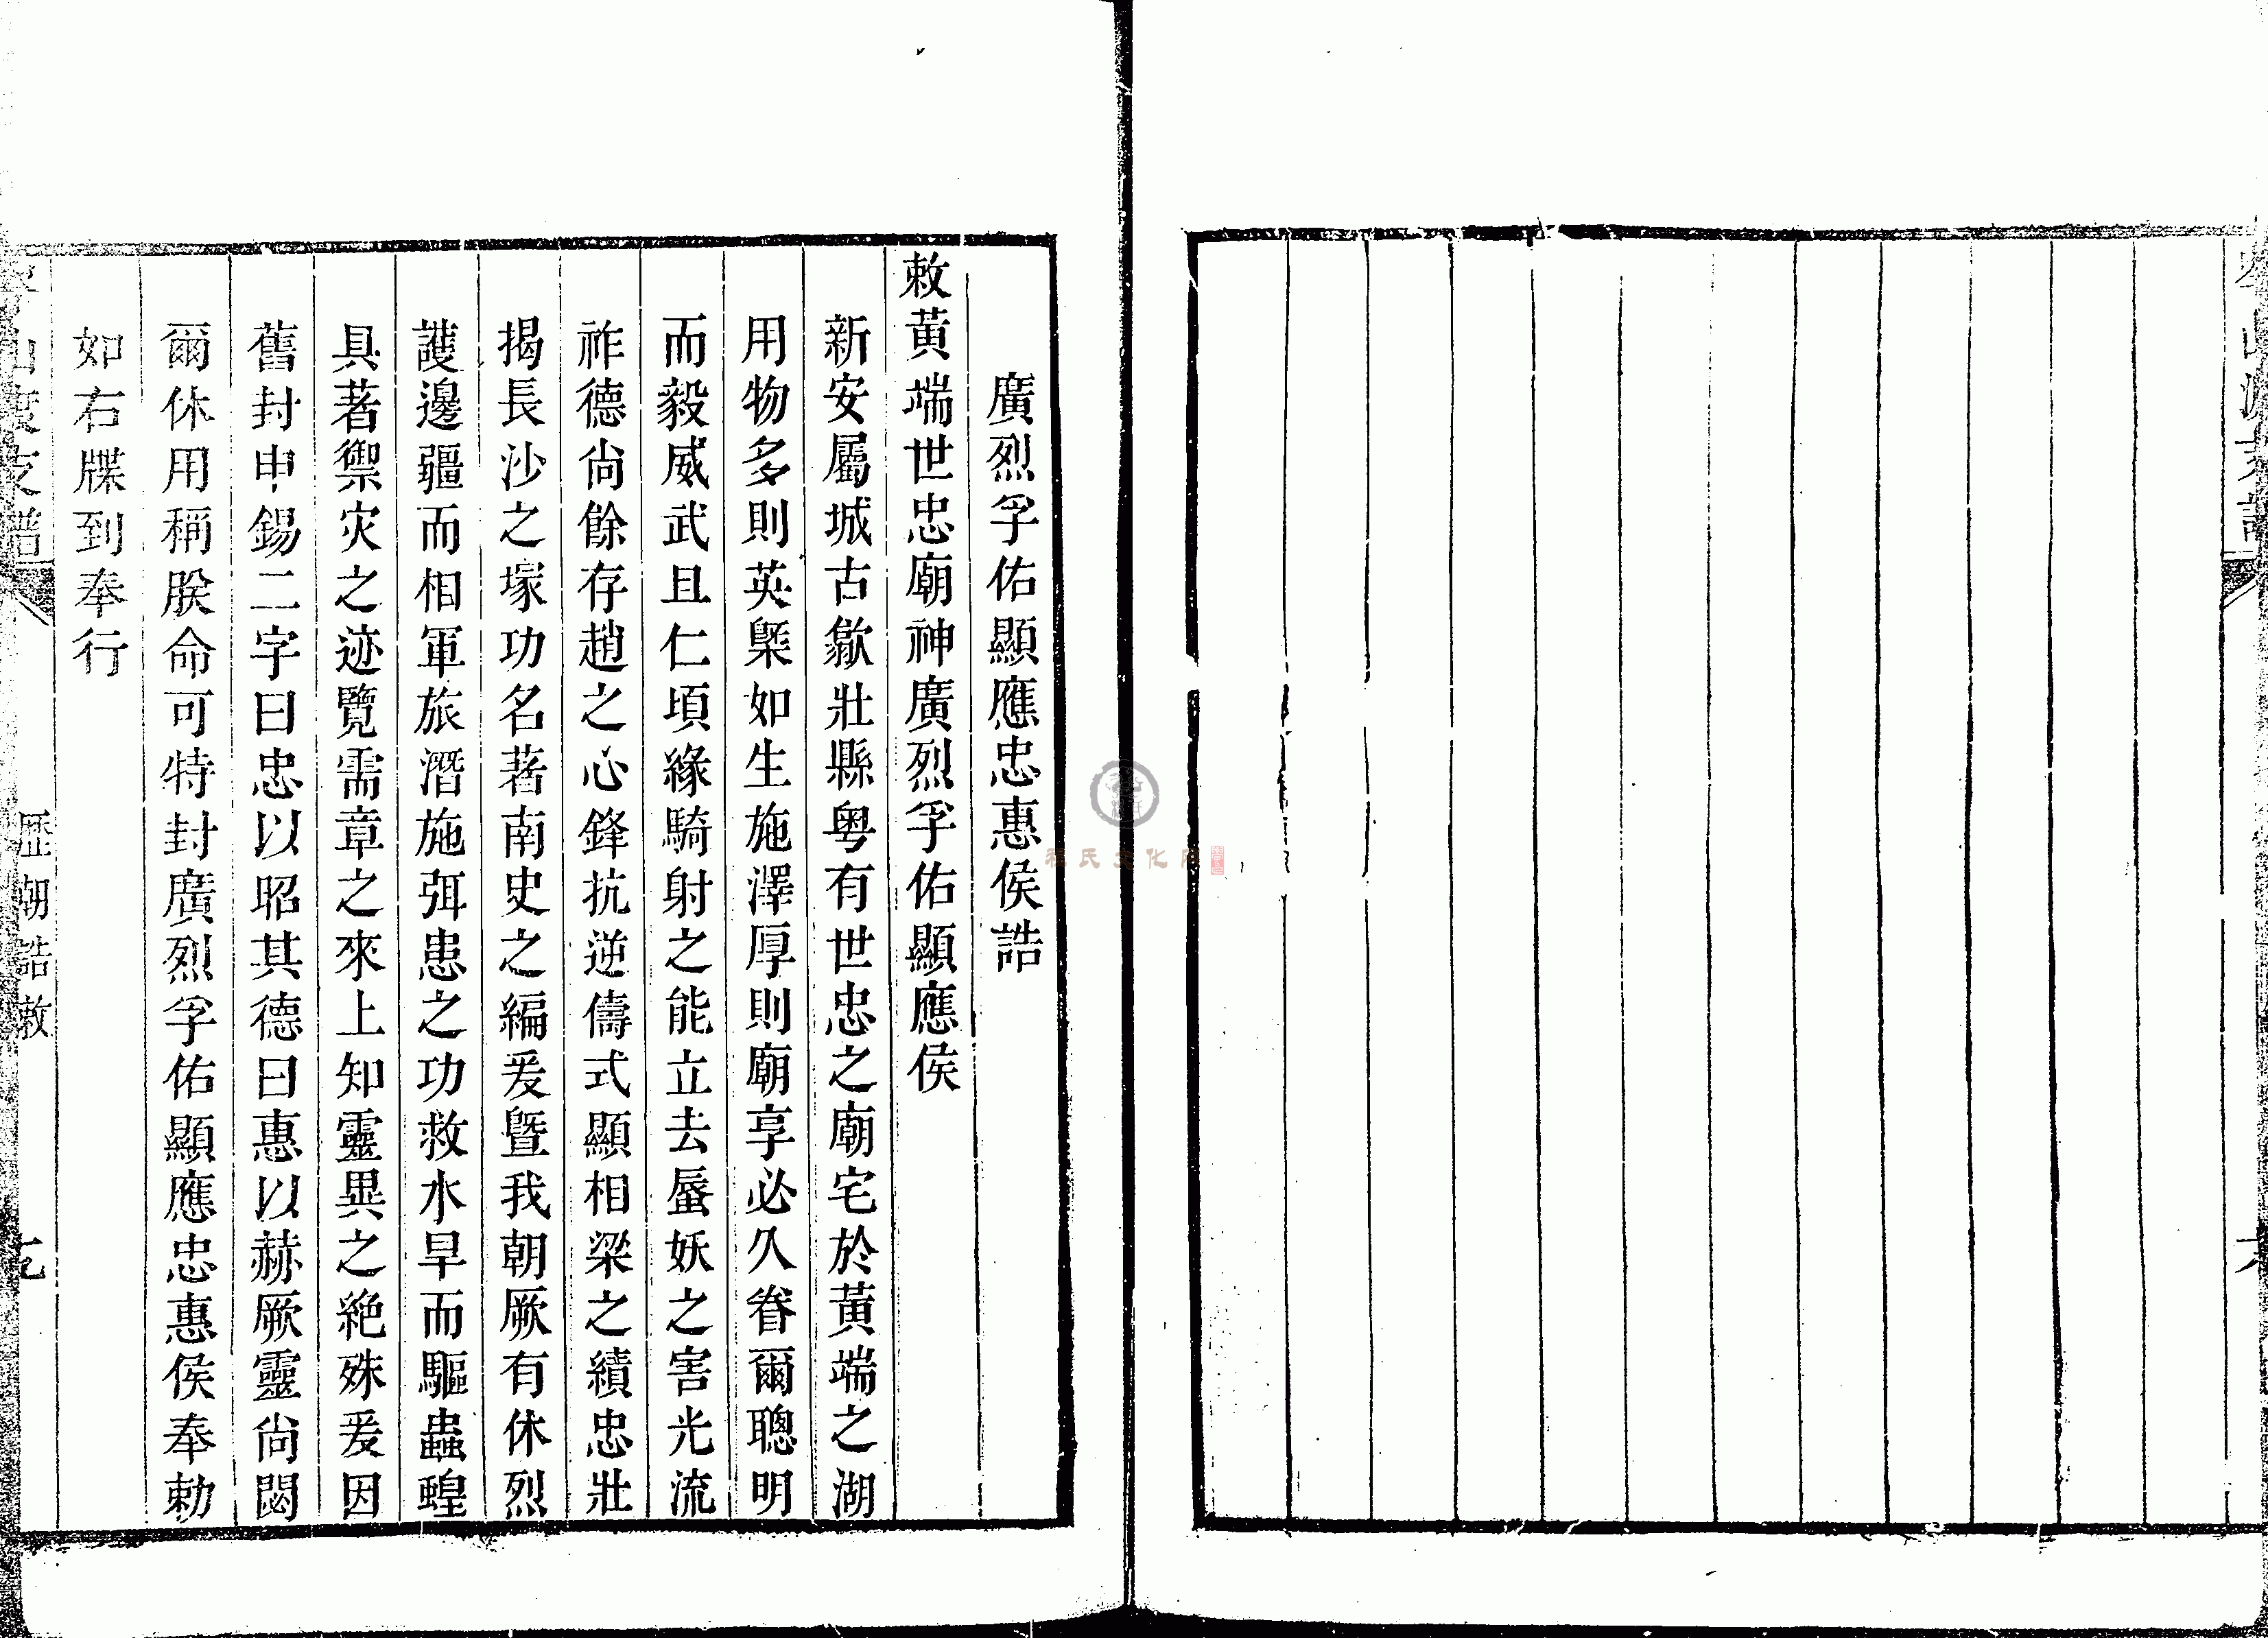 廣烈孚佑顯應忠惠侯誥
敕黃端世忠廟神廣烈孚佑顯應侯
新安屬城古歙壯縣粤有世忠之廟宅於黃端之湖
用物多則英槩如生施澤厚則廟享必久眷爾聰明
而毅威武且仁頃緣騎射之能立去蜃妖之害光流
祚德尙餘存趙之心鋒抗逆儔式顯相梁之績忠壯
揭長沙之塚功名著南史之編爰曁我朝厥有休烈
護邊疆而相軍旅潛施弭患之功救水旱而驅蟲蝗
具著禦灾之迹覽需章之來上知靈異之絶殊爰因
舊封申錫二字曰忠以昭其德曰惠以赫厥靈尙閟
爾休用稱朕命可特封廣烈孚佑顯應忠惠侯奉勅
如右牒到奉行
歷朝誥敕